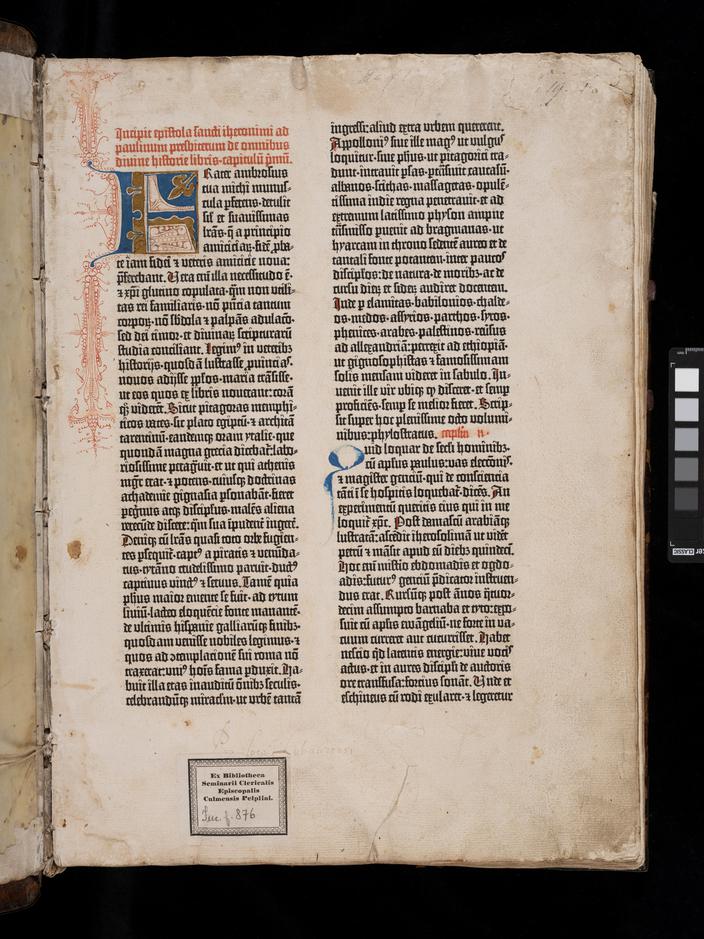 Incipit epistola sancti iheronimi ad
paulinum presbiterum de omnibus
divine historie libris· capitulū pͥmū.
Frater ambrosius
tua michi munus-
cula ꝑferens· detulit
sil̄ et suavissimas
lr̄as· q̄ a principio
amiciciaꝝ· fidē ꝓba-
te iam fidei ⁊ veteris amicicie nova:
p̄ferebant. Vera enī illa necessitudo ē·
⁊ xp̄i glutino copulata· q̄m non utili-
tas rei familiaris· nō pn̄tia tantum
corpoꝝ· nō sb̄dola ⁊ palpās adulacō·
sed dei timor· et divinaꝝ scripturarū
studia conciliant. Legimꝰ in veteribꝫ
historijs· quosdā lustrasse ꝓvinciaˢ·
novos adijsse ppl̄os· maria trāsisse·
ut eos quos ex libris noverant: corā
qꝫ viderēt. Sicut pitagoras memphi-
ticos vates· sic plato egiptū ⁊ architā
tarentinū· eandemqꝫ oram ytalie· que
quondā magna grecia dicebat̄· labo-
riosissime peragͣvit· et ut qui athenis
mgr̄ erat· ⁊ potens· cuiusqꝫ doctrinas
achademie gignasia ꝑsonabāt· fieret
peg̾nus atqꝫ discipulus· malēs aliena
verecūde discere· qͣm sua īpudent̄ inger̾e.
Deniqꝫ cū lr̄as quasi toto orbe fugien-
tes ꝑsequit̄· captꝰ a piratis ⁊ venūda-
tus· tyrāno crudelissimo paruit· ductꝰ
captivus vinctꝰ ⁊ servus. Tamē quia
ph̄us maior emente se fuit· ad tytum
livium· lacteo eloquēcie fonte manantē·
de vltimis hispanie galliarūqꝫ finibꝫ·
quosdam venisse nobiles legimus· ⁊
quos ad ꝯtemplacionē sui roma nō
traxerat: uniꝰ hoīs fama ꝑduxit. Ha-
buit illa etas inauditū om̄ibꝫ seculis·
celebrandūqꝫ miraclm̄· ut urbē tantā
ingressi: aliud extra urbem quererent.
Apolloniꝰ sive ille magꝰ ut vulgꝰ
loquitur· sive ph̄us· ut pitagorici tra-
dunt· intravit ꝑsas· ꝑtrāsivit caucasū·
albanos· scithas· massagetas· opulē-
tissima indie regna penetravit· et ad
extremum latissimo physon ampne
trāsmisso ꝑvenit ad bragmanas· ut
hyarcam in throno sedentē aureo et de
tantali fonte potantem· inter paucoˢ
discipl̄os· de natura· de moribꝫ· ac de
cursu dieꝝ et sideꝝ audiret docentem.
Inde ꝑ elamitas· babilonios· chalde-
os· medos· assyrios· parthos· syros·
phenices· arabes· palestinos· reūsus
ad allexandriā: perrexit ad ethiopiā·
ut gignosophistas ⁊ famosissimam
solis mensam videret in sabulo. In-
venit ille vir ubiqꝫ qͩ disceret· et semꝑ
proficiēs· semꝑ se melior fieret. Scrip-
sit super hoc plenissime octo volumi-
nibus: phylostratus.
Quid loquar de secli hominibꝫ·
cū apl̄us paulus· vas electōniˢ·
⁊ magister gencīu· qui de consciencia
tāti ī se hospitis loquebat̄· dicēs· An
experimentū queritis eius qui in me
loquit̄ xp̄c. Post damascū arabiāqꝫ
lustratā: ascēdit iherosolimā ut vidēt
petrū ⁊ māsit apud eū diebꝫ quindeci.
Hoc enī misterio ebdomadis et ogdo-
adis: futurꝰ genciū p̄dicator instruen-
dus erat. Rursūqꝫ post ānos q̄tuor-
decim assumpto barnaba et tyto: expo-
suit cū apl̄is evvāgeliū· ne forte in va-
cuum curreret aut cucurrisset. Habet
nescio qͥd latentis energie: vive vociˢ
actus· et in aures discipl̄i de auctoris
ore transfusa: forcius sonāt. Unde et
eschineus cū rodi exularet· ⁊ legeretur
Ex Bibliotheca
Seminarii Clericalis
Episcopalis
Culmensis Pelplini.
Inc. f. 876